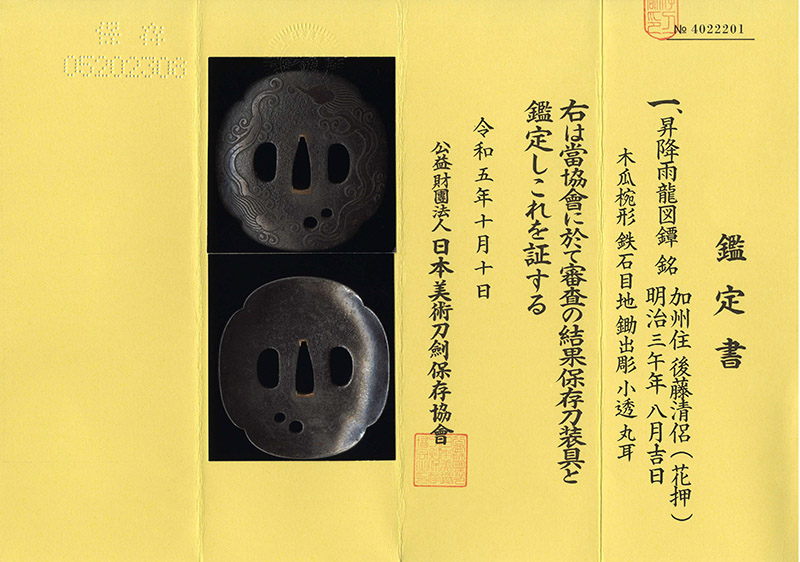 № 4022201
鑑定書
一、昇降雨龍図鐔 銘 加州住 後藤清侶(花押)
明治三午年 八月吉日
木瓜椀形 鉄石目地 鋤出彫 小透 丸耳
右は當協會に於て審査の結果保存刀装具と
鑑定しこれを証する
令和五年十月十日
公益財團法人 日本美術刀劍保存協會
保存
05202306